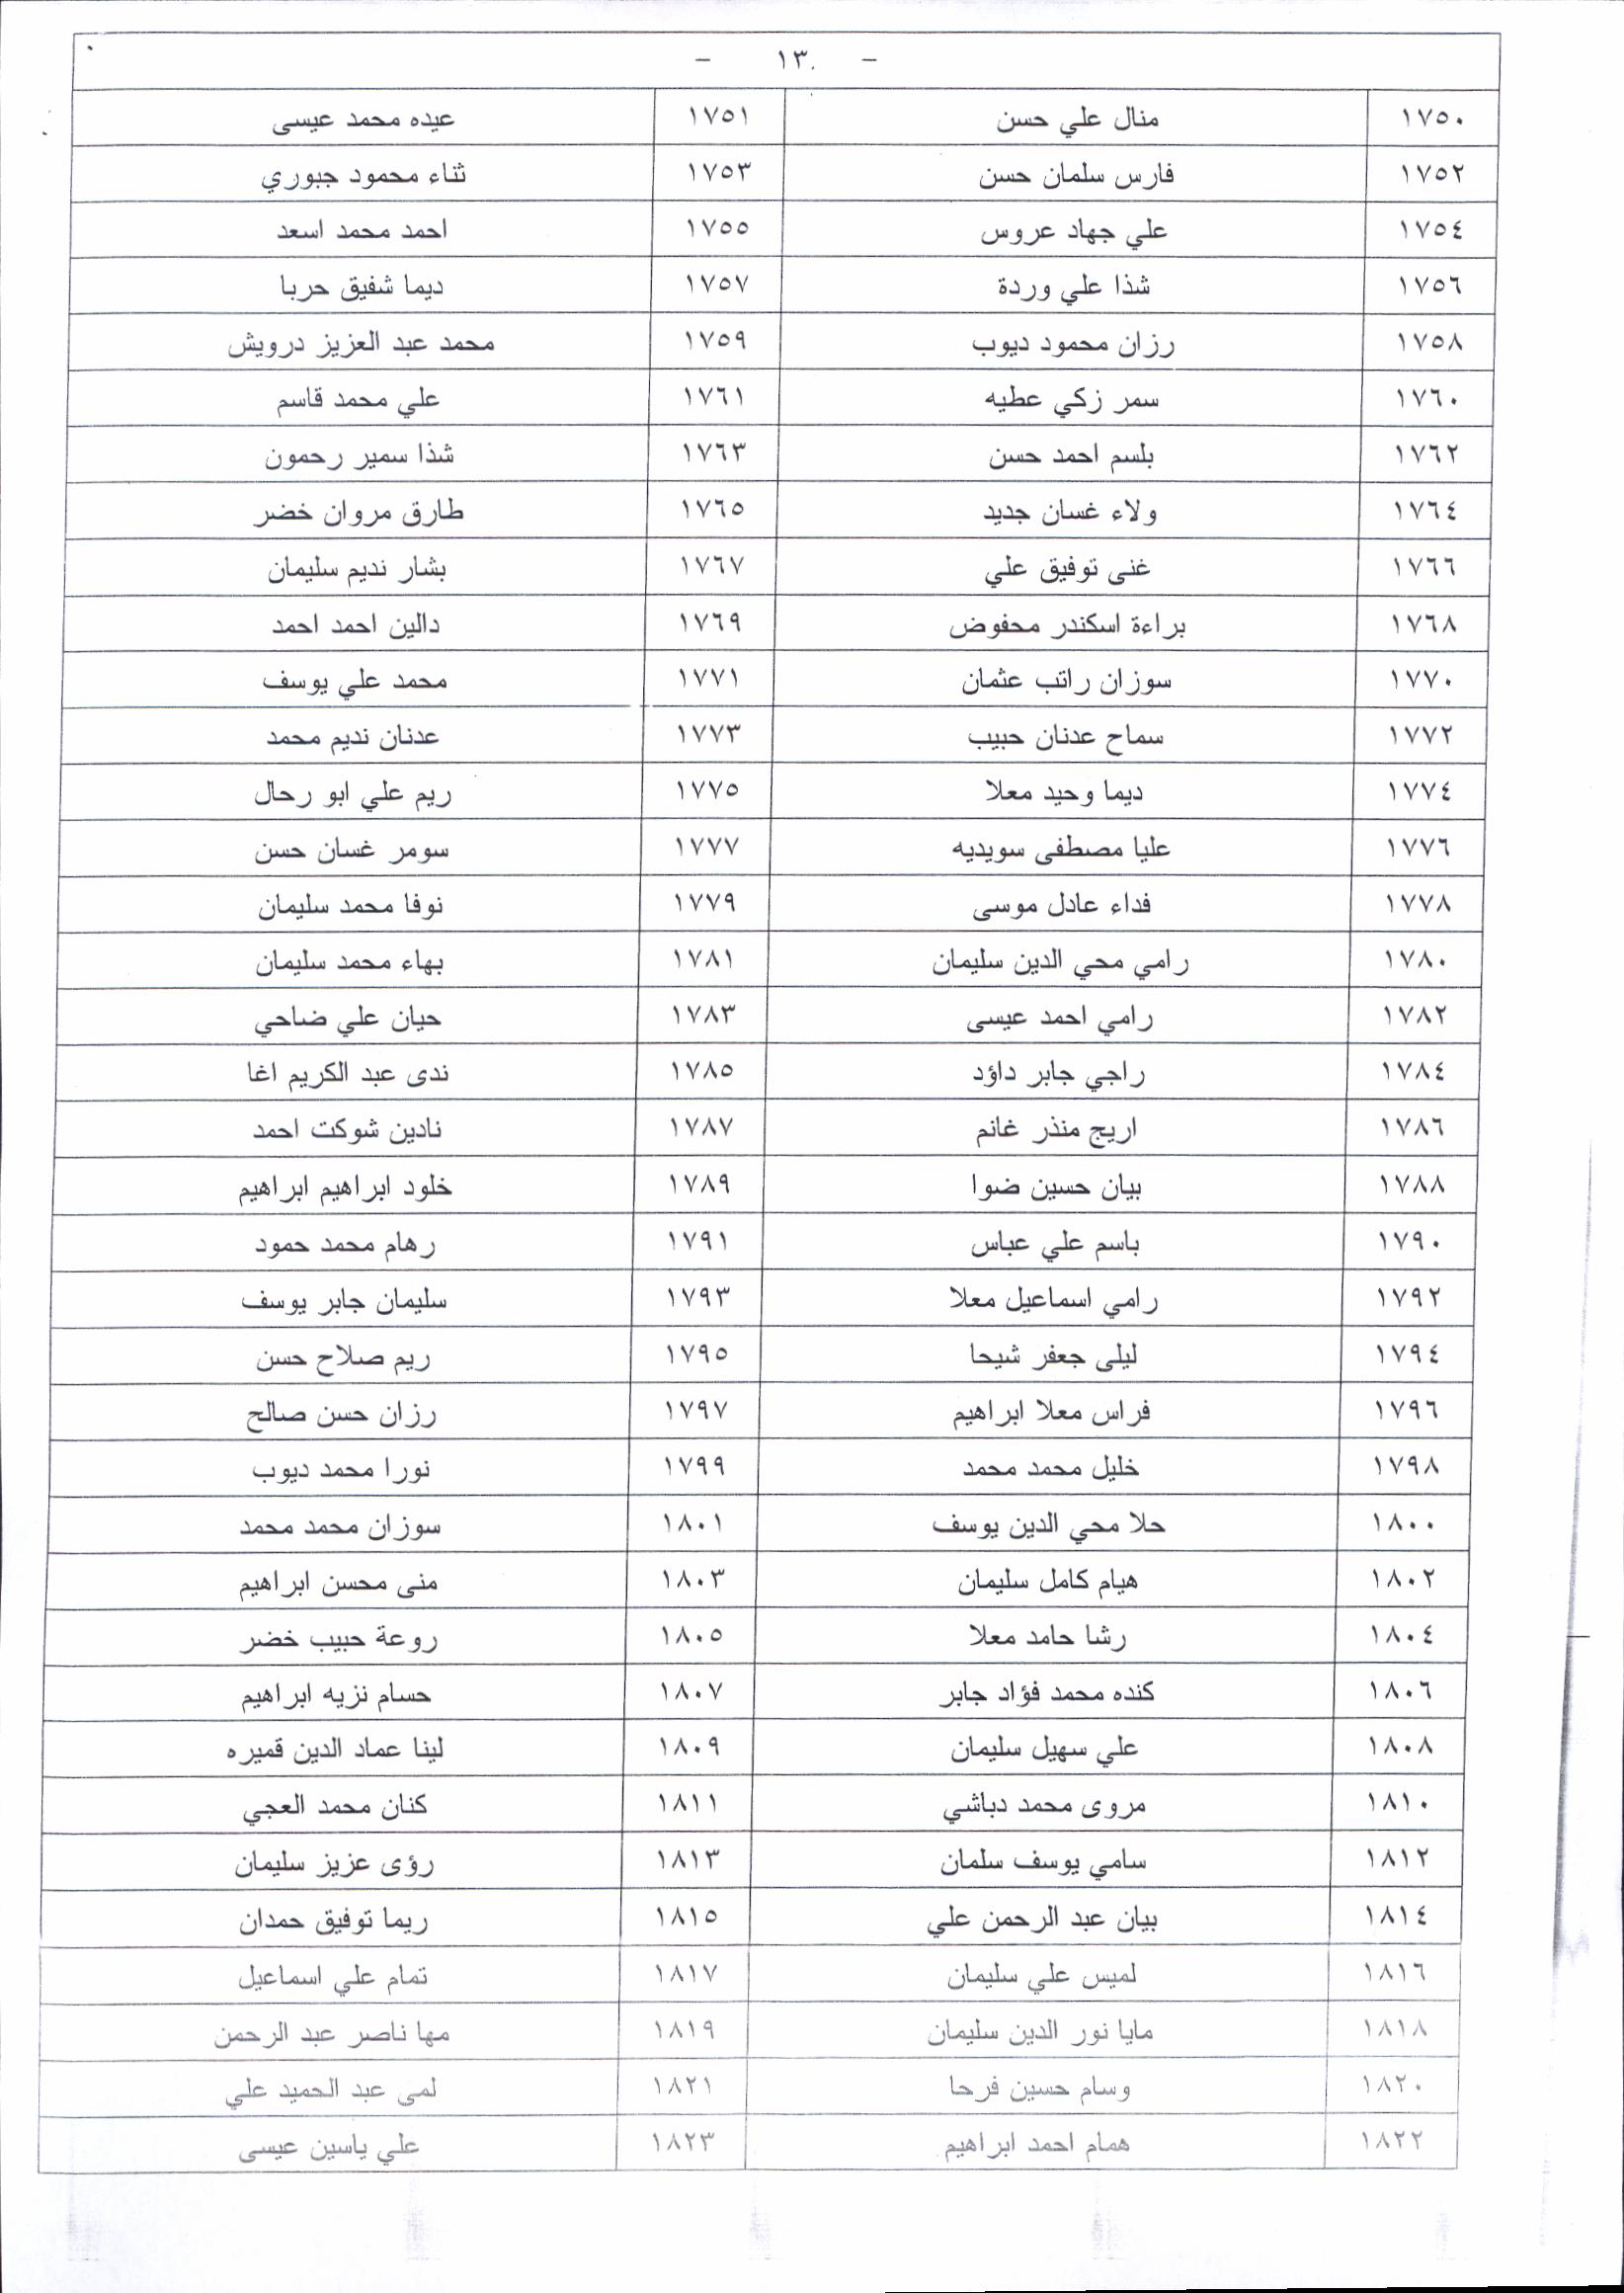 - ١٣. -
١٧٥٠ منال علي حسن ١٧٥١ عيده محمد عيسى
١٧٥٢ فارس سلمان حسن ١٧٥٣ ثناء محمود جبوري
١٧٥٤ علي جهاد عروس ١٧٥٥ احمد محمد اسعد
١٧٥٦ شذا علي وردة ١٧٥٧ ديما شفيق حربا
١٧٥٨ رزان محمود ديوب ١٧٥٩ محمد عبد العزيز درويش
١٧٦٠ سمر زكي عطيه ١٧٦١ علي محمد قاسم
١٧٦٢ بلسم احمد حسن ١٧٦٣ شذا سمير رحمون
١٧٦٤ ولاء غسان جديد ١٧٦٥ طارق مروان خضر
١٧٦٦ غنى توفيق علي ١٧٦٧ بشار نديم سليمان
١٧٦٨ براءة اسكندر محفوض ١٧٦٩ دالين احمد احمد
١٧٧٠ سوزان راتب عثمان ١٧٧١ محمد علي يوسف
١٧٧٢ سماح عدنان حبيب ١٧٧٣ عدنان نديم محمد
١٧٧٤ ديما وحيد معلا ١٧٧٥ ريم علي ابو رحال
١٧٧٦ عليا مصطفى سويديه ١٧٧٧ سومر غسان حسن
١٧٧٨ فداء عادل موسى ١٧٧٩ نوفا محمد سليمان
١٧٨٠ رامي محي الدين سليمان ١٧٨١ بهاء محمد سليمان
١٧٨٢ رامي احمد عيسى ١٧٨٣ حيان علي ضاحي
١٧٨٤ راجي جابر داؤد ١٧٨٥ ندى عبد الكريم اغا
١٧٨٦ اريج منذر غانم ١٧٨٧ نادين شوكت احمد
١٧٨٨ بيان حسين ضوا ١٧٨٩ خلود ابراهيم ابراهيم
١٧٩٠ باسم علي عباس ١٧٩١ رهام محمد حمود
١٧٩٢ رامي اسماعيل معلا ١٧٩٣ سليمان جابر يوسف
١٧٩٤ ليلى جعفر شيحا ١٧٩٥ ريم صلاح حسن
١٧٩٦ فراس معلا ابراهيم ١٧٩٧ رزان حسن صالح
١٧٩٨ خليل محمد محمد ١٧٩٩ نورا محمد ديوب
١٨٠٠ حلا محي الدين يوسف ١٨٠١ سوزان محمد محمد
١٨٠٢ هيام كامل سليمان ١٨٠٣ منى محسن ابراهيم
١٨٠٤ رشا حامد معلا ١٨٠٥ روعة حبيب خضر
١٨٠٦ كنده محمد فؤاد جابر ١٨٠٧ حسام نزيه ابراهيم
١٨٠٨ علي سهيل سليمان ١٨٠٩ لينا عماد الدين قميره
١٨١٠ مروى محمد دباشي ١٨١١ كنان محمد العجي
١٨١٢ سامي يوسف سلمان ١٨١٣ رؤى عزيز سليمان
١٨١٤ بيان عبد الرحمن علي ١٨١٥ ريما توفيق حمدان
١٨١٦ لميس علي سليمان ١٨١٧ تمام علي اسماعيل
١٨١٨ مايا نور الدين سليمان ١٨١٩ مها ناصر عبد الرحمن
١٨٢٠ وسام حسين فرحا ١٨٢١ لمى عبد الحميد علي
١٨٢٢ همام احمد ابراهيم ١٨٢٣ علي ياسين عيسى